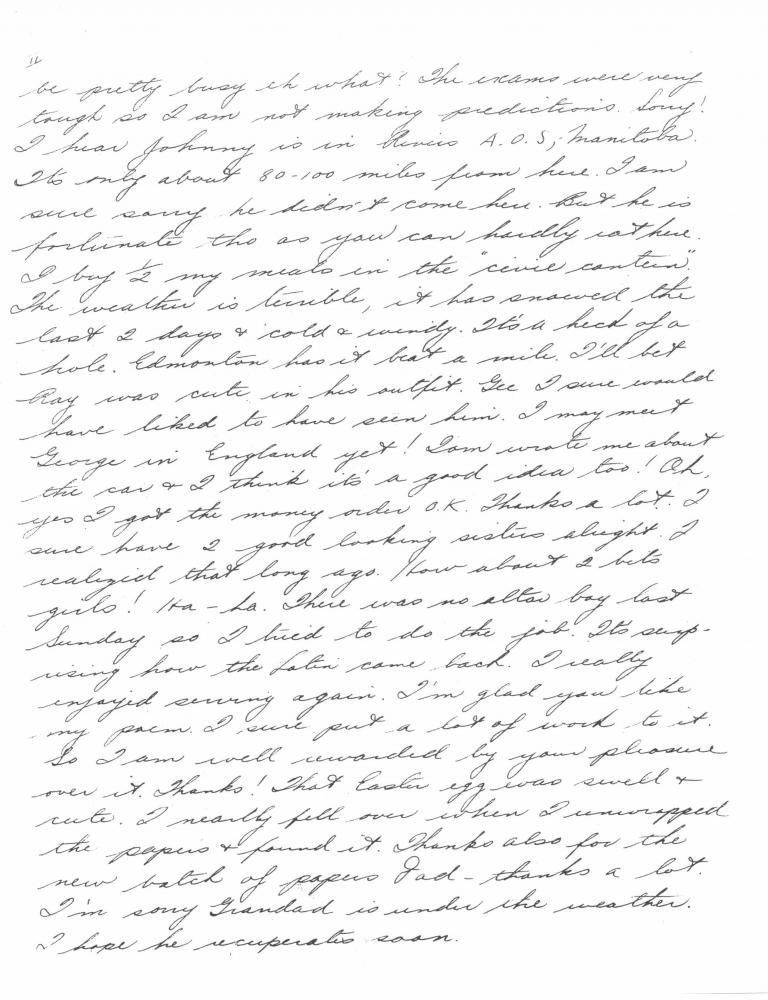 II
be pretty busy eh what? The exams were very
tough so I am not making predictions. Sorry!
I hear Johnny is in Rivers A.O.S; Manitoba.
Its only about 80-100 miles from here. I am
sure sorry he didn't come here. But he is
fortunate tho as you can hardly eat here.
I buy 1/2 my meals in the "civie canteen".
The weather is terrible, it has snowed the
last 2 days & cold & windy. It's a heck of a
hole. Edmonton has it beat a mile. I'll bet
Ray was cute in his outfit. Gee I sure would
have liked to have seen him. I may meet
George in England yet! Tom wrote me about
the car & I think it's a good idea too! Oh,
yes I got the money order O.K. Thanks a lot. I
sure have 2 good looking sisters alright. I
realized that long ago. How about 2 bits
girls! Ha-ha. There was no altar boy last
Sunday so I tried to do the job. It's surp-
rising how the Latin came back. I really
enjoyed serving again. I'm glad you like
my poem. I sure put a lot of work to it.
So I am well rewarded by your pleasure
over it. Thanks! That Easter egg was swell &
cute. I nearly fell over when I unwrapped
the papers & found it. Thanks also for the
new batch of papers Dad - thanks a lot.
I'm sorry Grandad is under the weather.
I hope he recuperates soon.